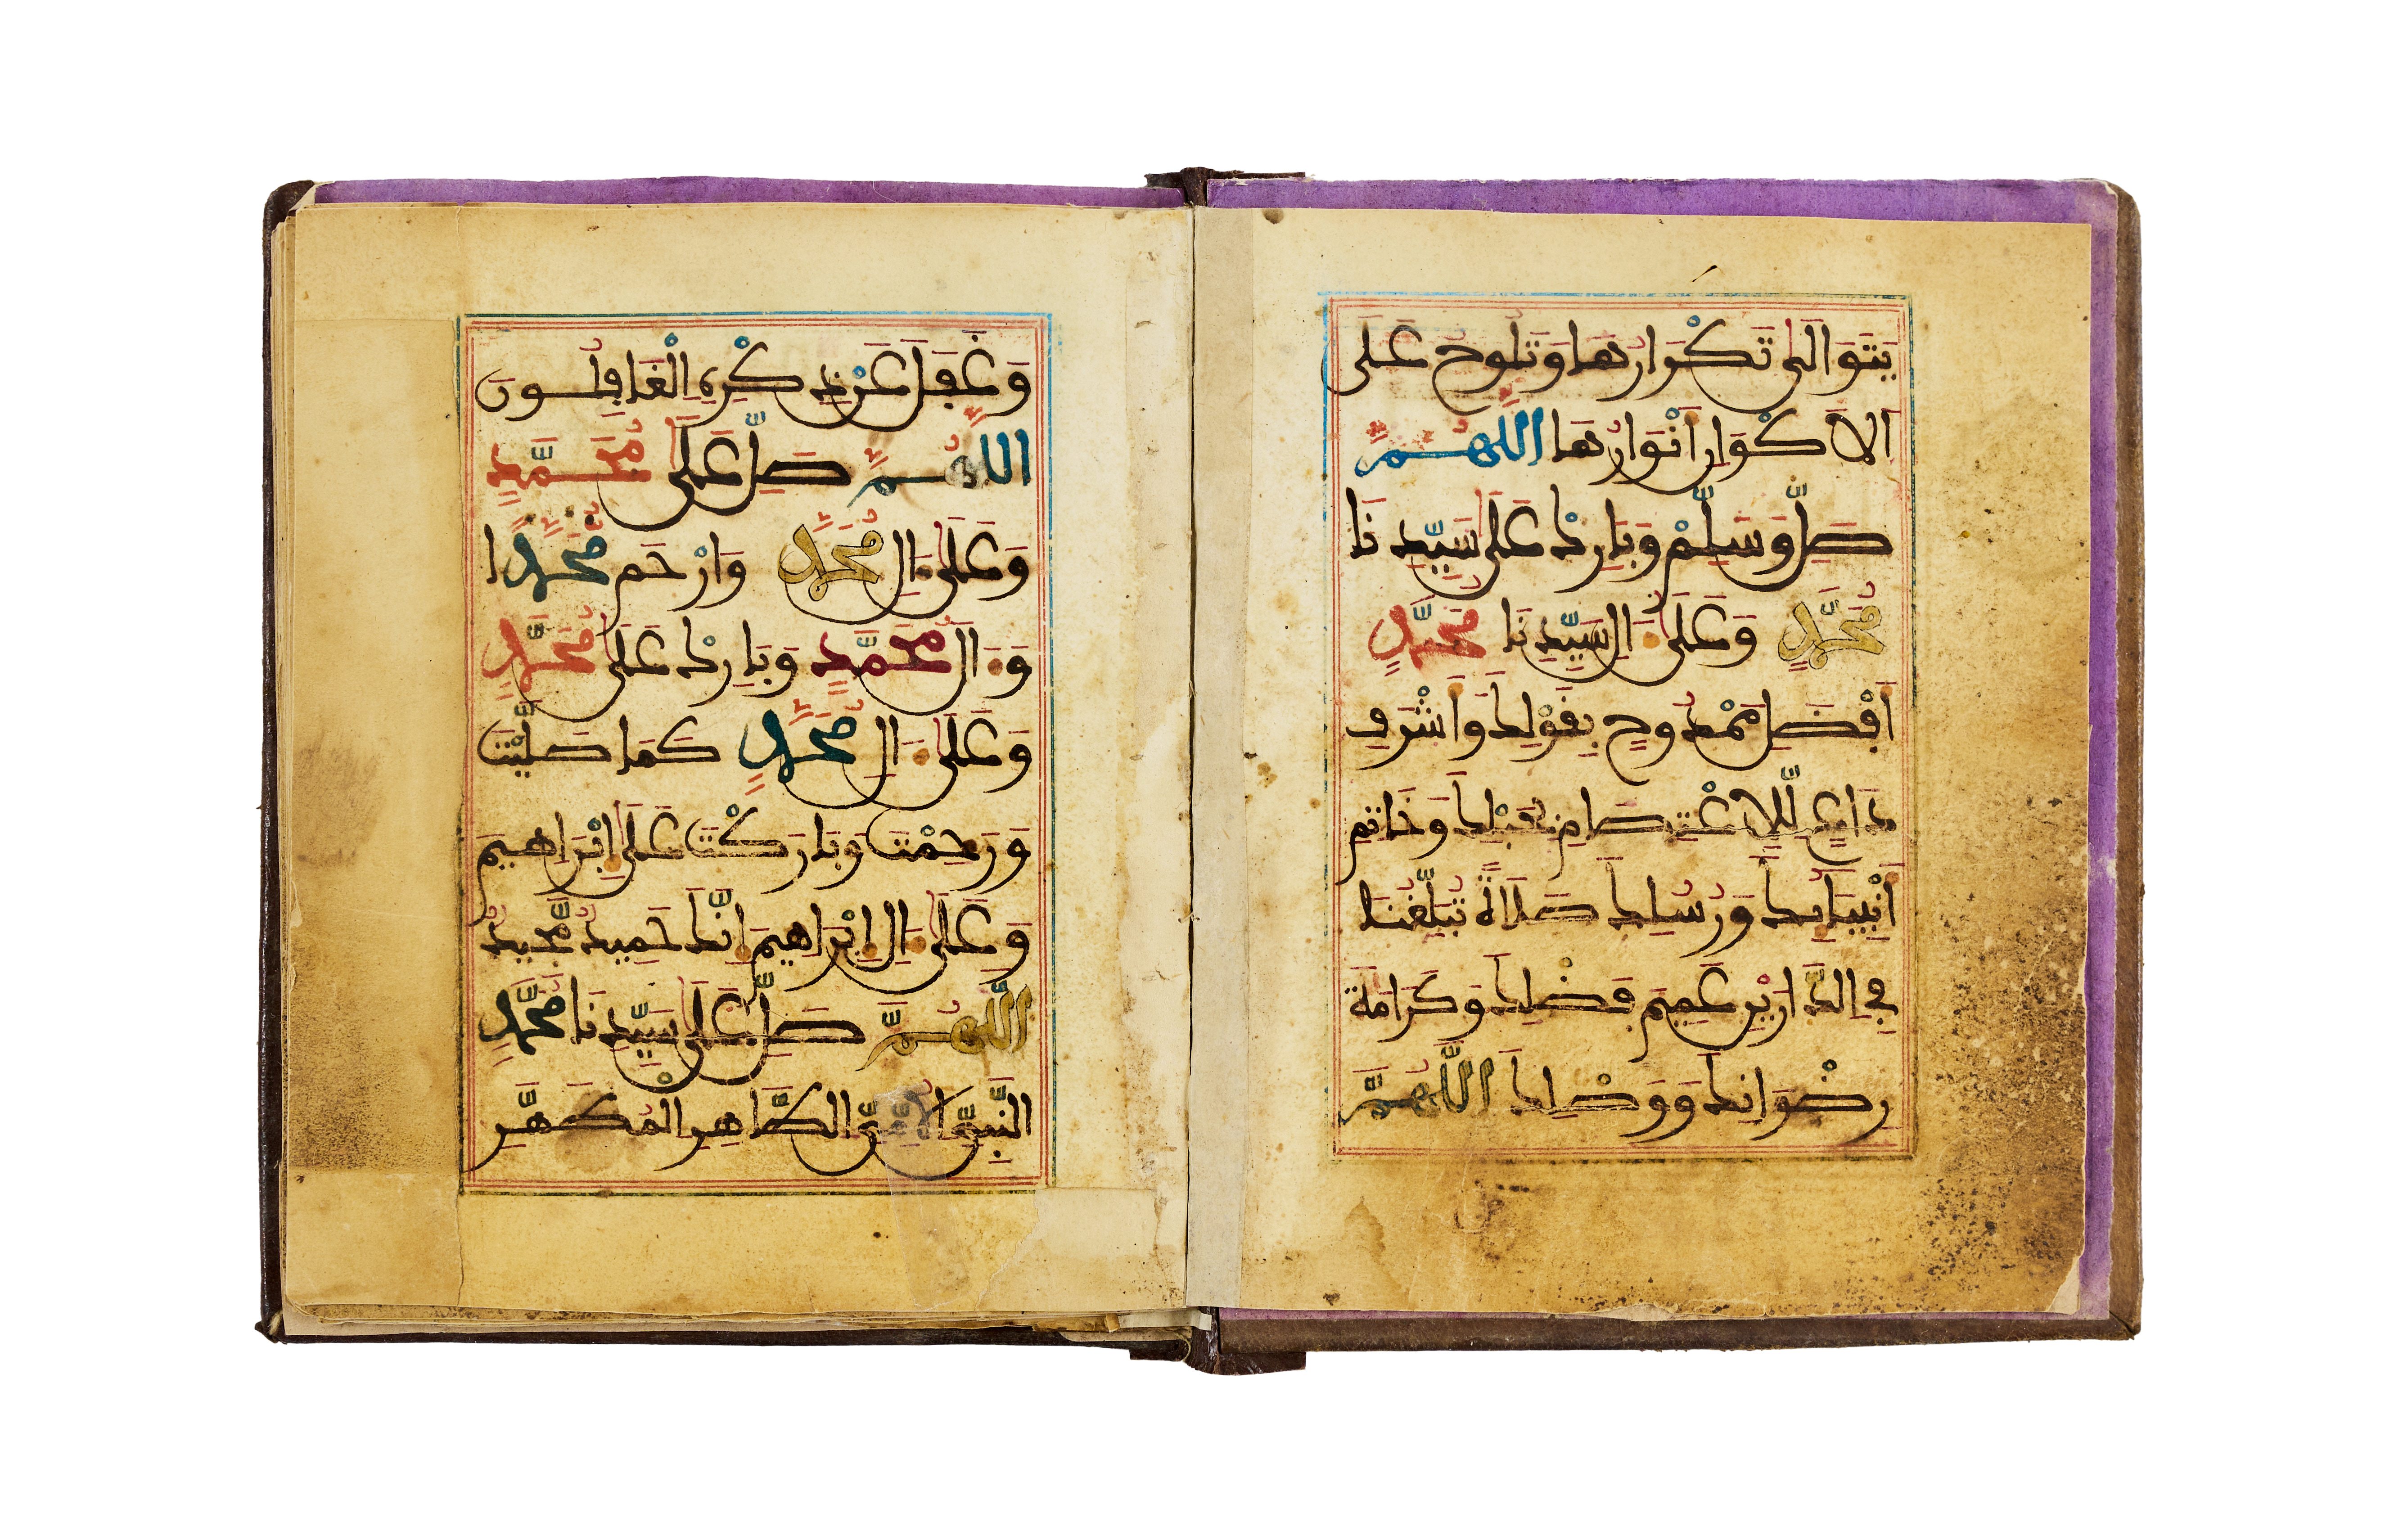 يَتَوَالَى تَكْرَارُهَا وَتَلُوحُ عَلَى
اَلَاكْوَارِ أَنْوَارُهَا اللَّهُمَّ
صَلِّ وَسَلِّمْ وَبَارِكْ عَلَى سَيِّدِنَا
مُحَمَّدٍ وَعَلَى ءَالِ سَيِّدِنَا مُحَمَّدٍ
أَفْضَلِ مَمْدُوحٍ بِقَوْلِكَ وَأَشْرَفِ
دَاعٍ لِلِاعْتِصَامِ بِحَبْلِكَ وَخَاتِمِ
أَنْبِيَائِكَ وَرُسُلِكَ صَلَاةً تُبَلِّغُنَا
فِي الدَّارَيْنِ عَمِيمَ فَضْلِكَ وَكَرَامَةَ
رِضْوَانِكَ وَوَصْلِكَ اللَّهُمَّ
وَغَفَلَ عَن ذِكْرِهِ الْغَافِلُونَ
اللَّهُمَّ صَلِّ عَلَى مُحَمَّدٍ
وَعَلَى ءَالِ مُحَمَّدٍ وَارْحَم مُحَمَّدًا
وَءَالَ مُحَمَّدٍ وَبَارِكْ عَلَى مُحَمَّدٍ
وَعَلَى ءَالِ مُحَمَّدٍ كَمَا صَلَّيْتَ
وَرَحِمْتَ وَبَارَكْتَ عَلَى إِبْرَاهِيمَ
وَعَلَى ءَالِ إِبْرَاهِيمَ إِنَّكَ حَمِيدٌ مَّجِيدٌ
اللَّهُمَّ صَلِّ عَلَى سَيِّدِنَا مُحَمَّدٍ
النَّبِيِّ الْأُمِّيِّ الطَّاهِرِ الْمُطَهَّرِ